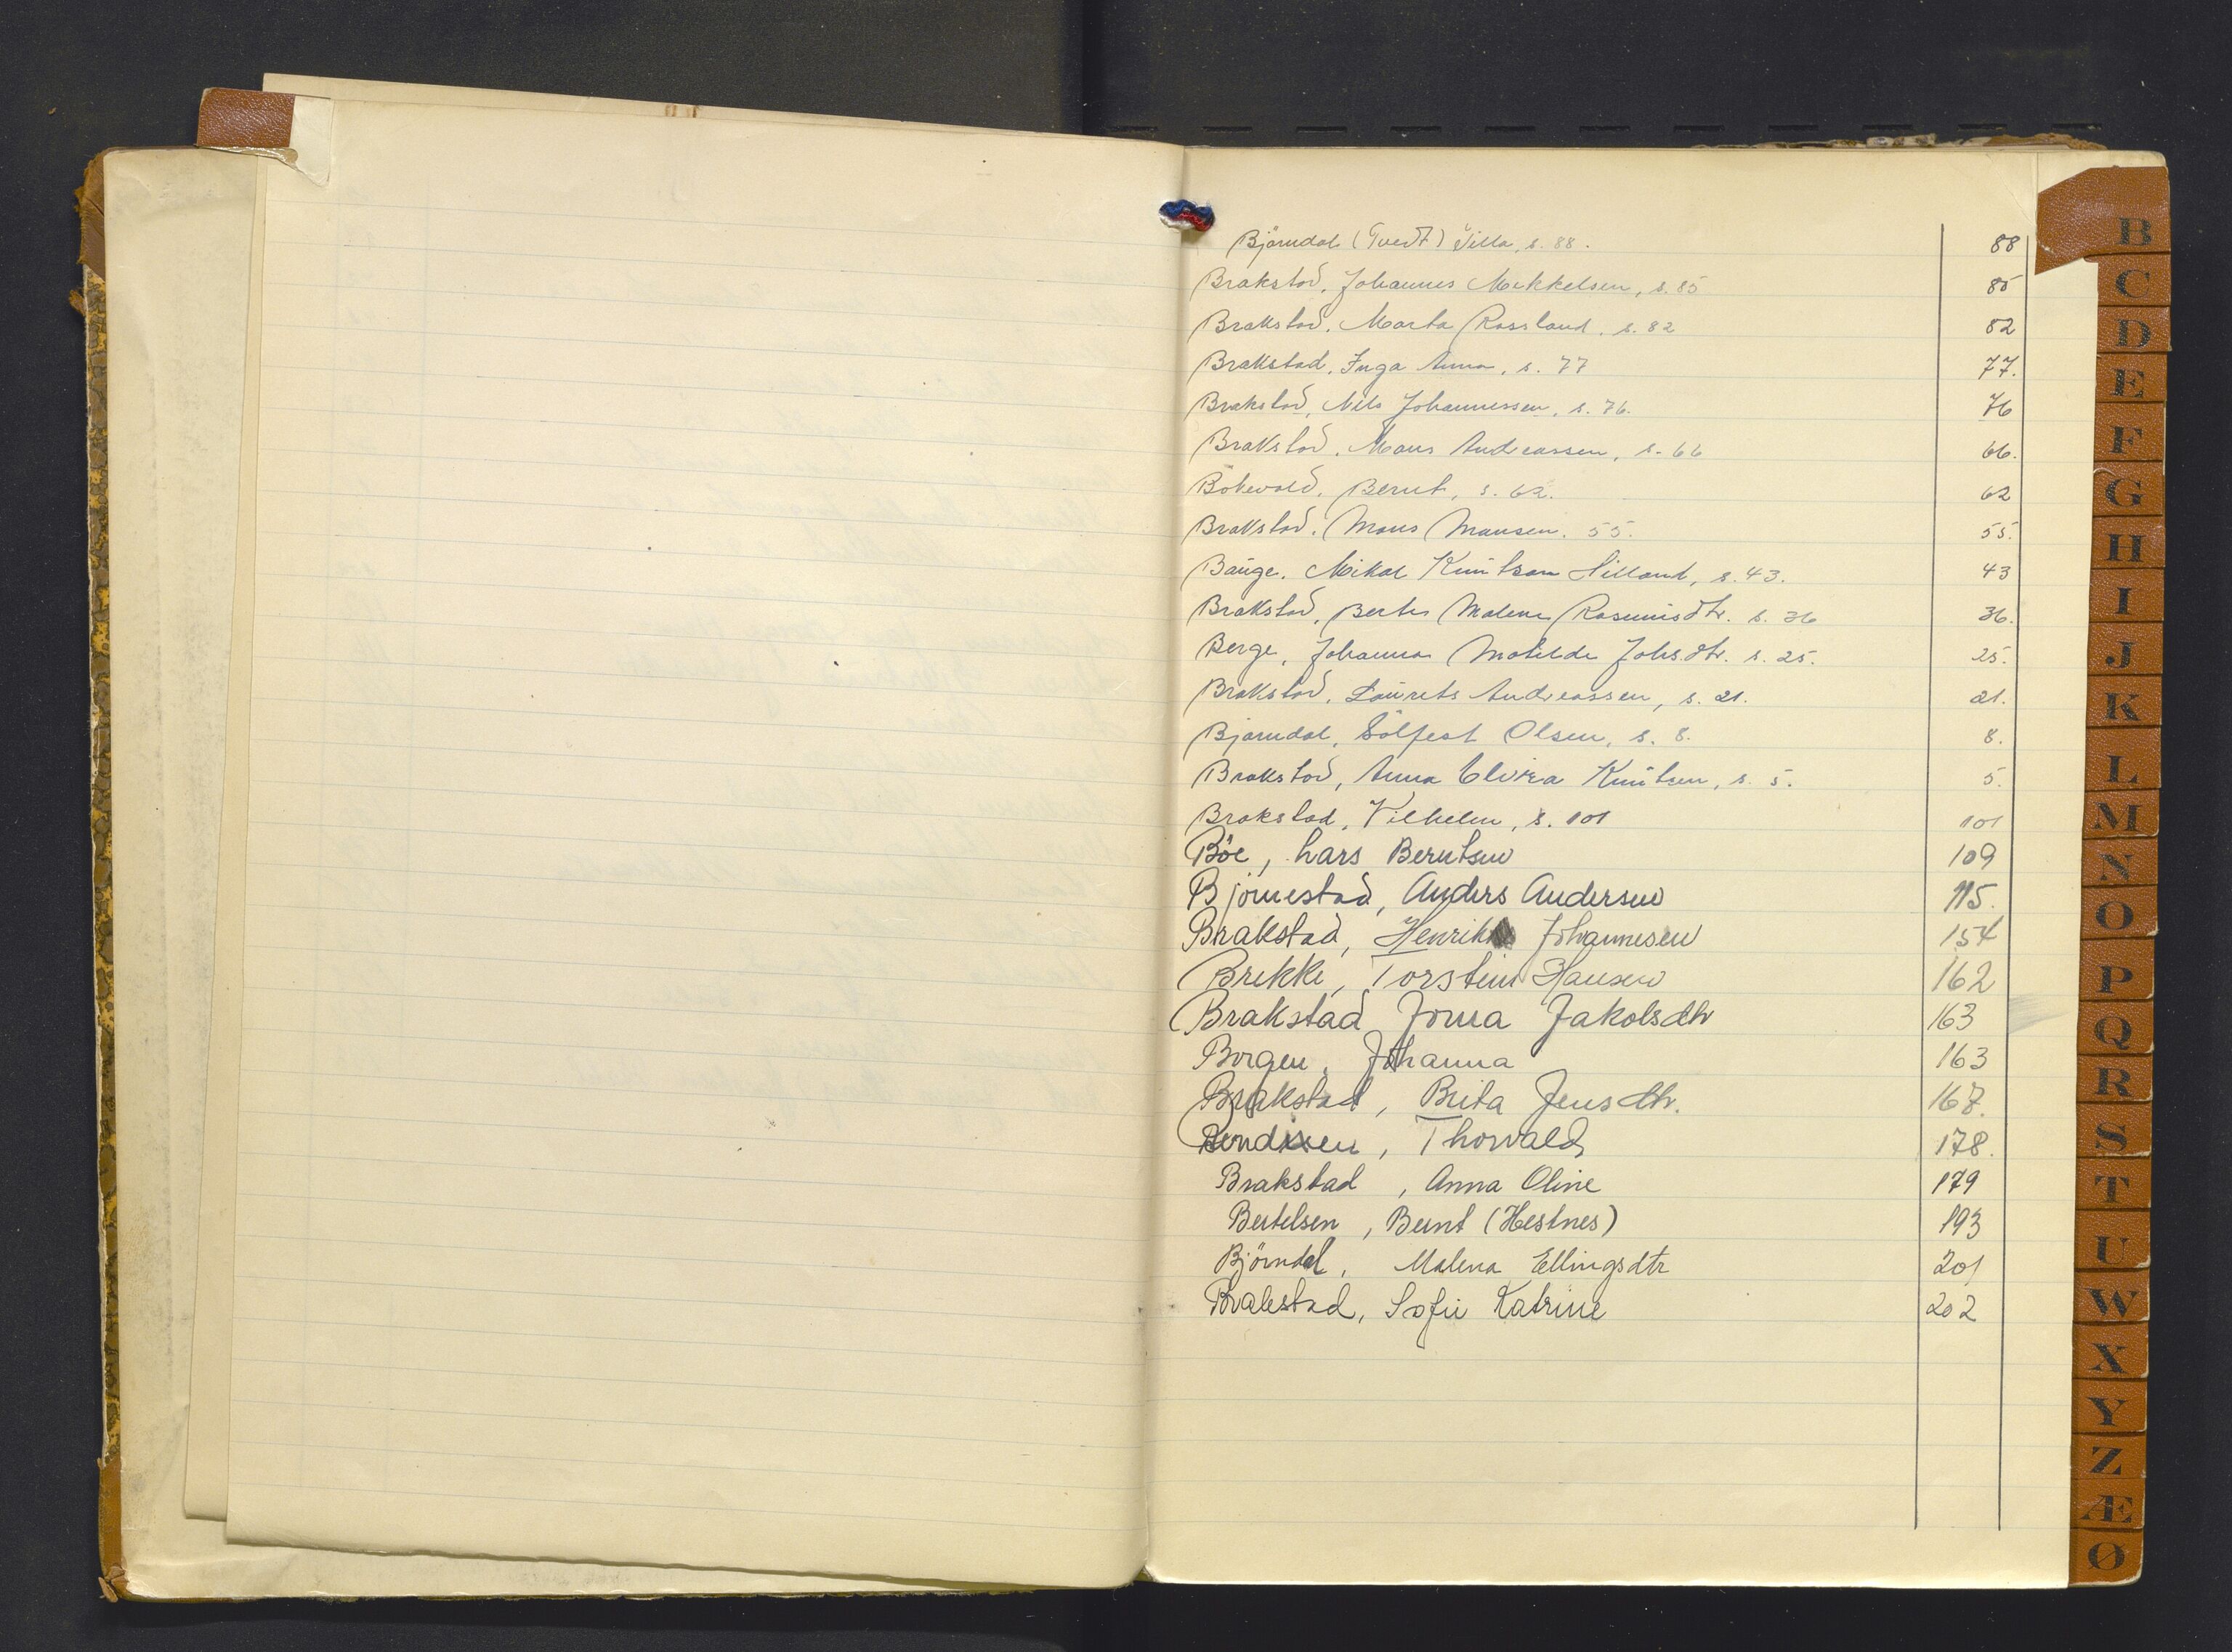 Björndal (Tvedt) Villa, s. 88. 88
Brakstad, Johannes Mikkelsen, s. 85 85
Brakstad, Marta Rossland, s. 82 82
Brakstad, Inga Anna, s. 77 77.
Brakstad, Nils Johannessen, s. 76. 76
Brakstad, Mons Andreassen, s. 66 66.
Bernt, s. 62. 62
Brakstad, Mons Monsen. 55. 55.
Bauge, Mikal Knutson Hilland, s. 43. 43
Brakstad, Berta Malene Rasmusdtr. s. 36 36.
Berge, Johanna Matilde Johs.dtr. s. 25. 25.
Brakstad, Laurits Andreassen, s. 21. 21.
Bjørndal, Sölfest Olsen, s. 8. 8.
Brakstad, Anna Elvira Knutsen, s. 5. 5.
Brakstad, Vilhelm, s. 101 101
Böe, Lars Berntsen 109
Björnestad, Anders Andersen 115.
Brakstad, Henrik Johannesen 154
Brekke, Torstein Hansen 162
Brakstad Jorna Jakobsdtr 163
Borgen, Johanna 163
Brakstad, Brita Jensdtr. 167.
Bendixen, Thorvald 178.
Brakstad, Anna Oline 179
Bertelsen, Bernt (Hestnes) 193
Björndal, Malena Ellingsdtr 201
Brakstad, Sofie Katrine 202
B
C
D
E
F
G
H
I
J
K
L
M
N
O
P
Q
R
S
T
U
W
X
Y
Z
Æ
Ø